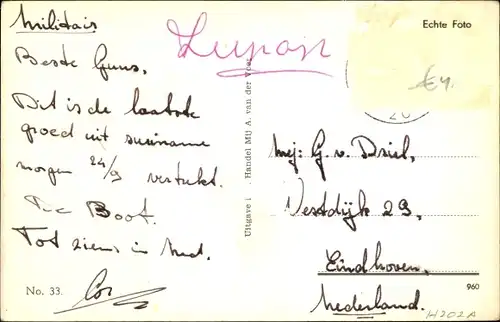 Militair
Beste Guus,
Dit is de laatste
groed uit suriname
morgen 24/9 vertrekt.
De Boot.
Tot ziens in Ned.
Cor
No. 33.
Uitgave: Handel Mij A. van der Voet
Echte Foto
€4.
20
Mej: G. v. Driel,
Vestdijk 29,
Eindhoven,
Nederland.
960
H202A